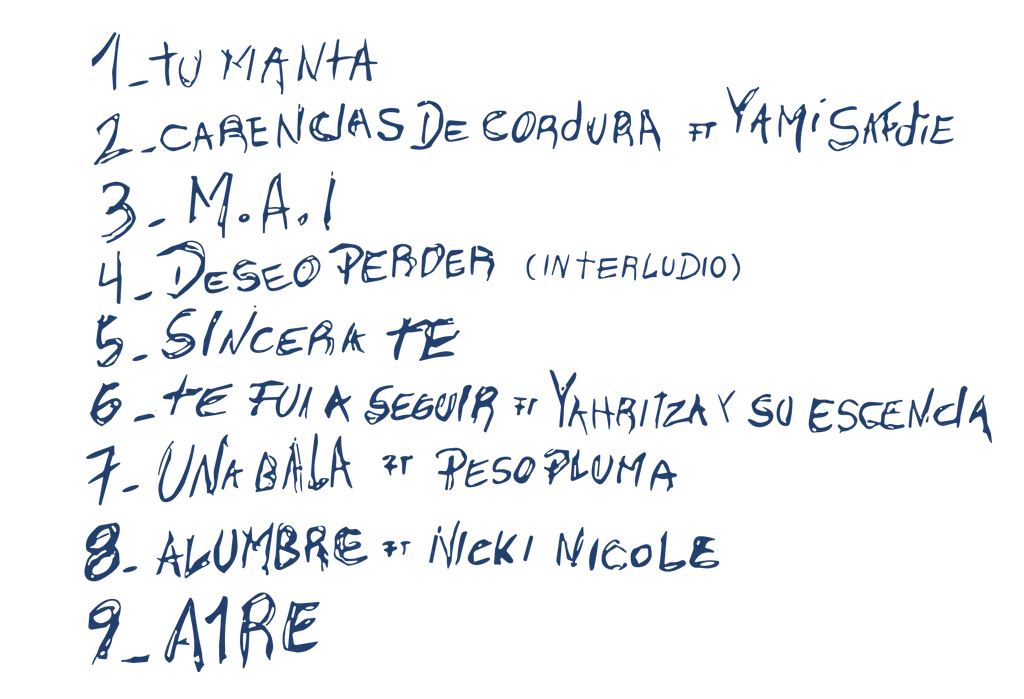 1_TU MANTA
2_CARENCIAS DE CORDURA FT YAMI SAFDIE
3_M.A.I
4_DESEO PERDER (INTERLUDIO)
5_SINCERA TE
6_TE FUI A SEGUIR FT YAHRITZA Y SU ESCENCIA
7_UNA BALA FT PESO PLUMA
8_ALUMBRE FT NICKI NICOLE
9_AIRE